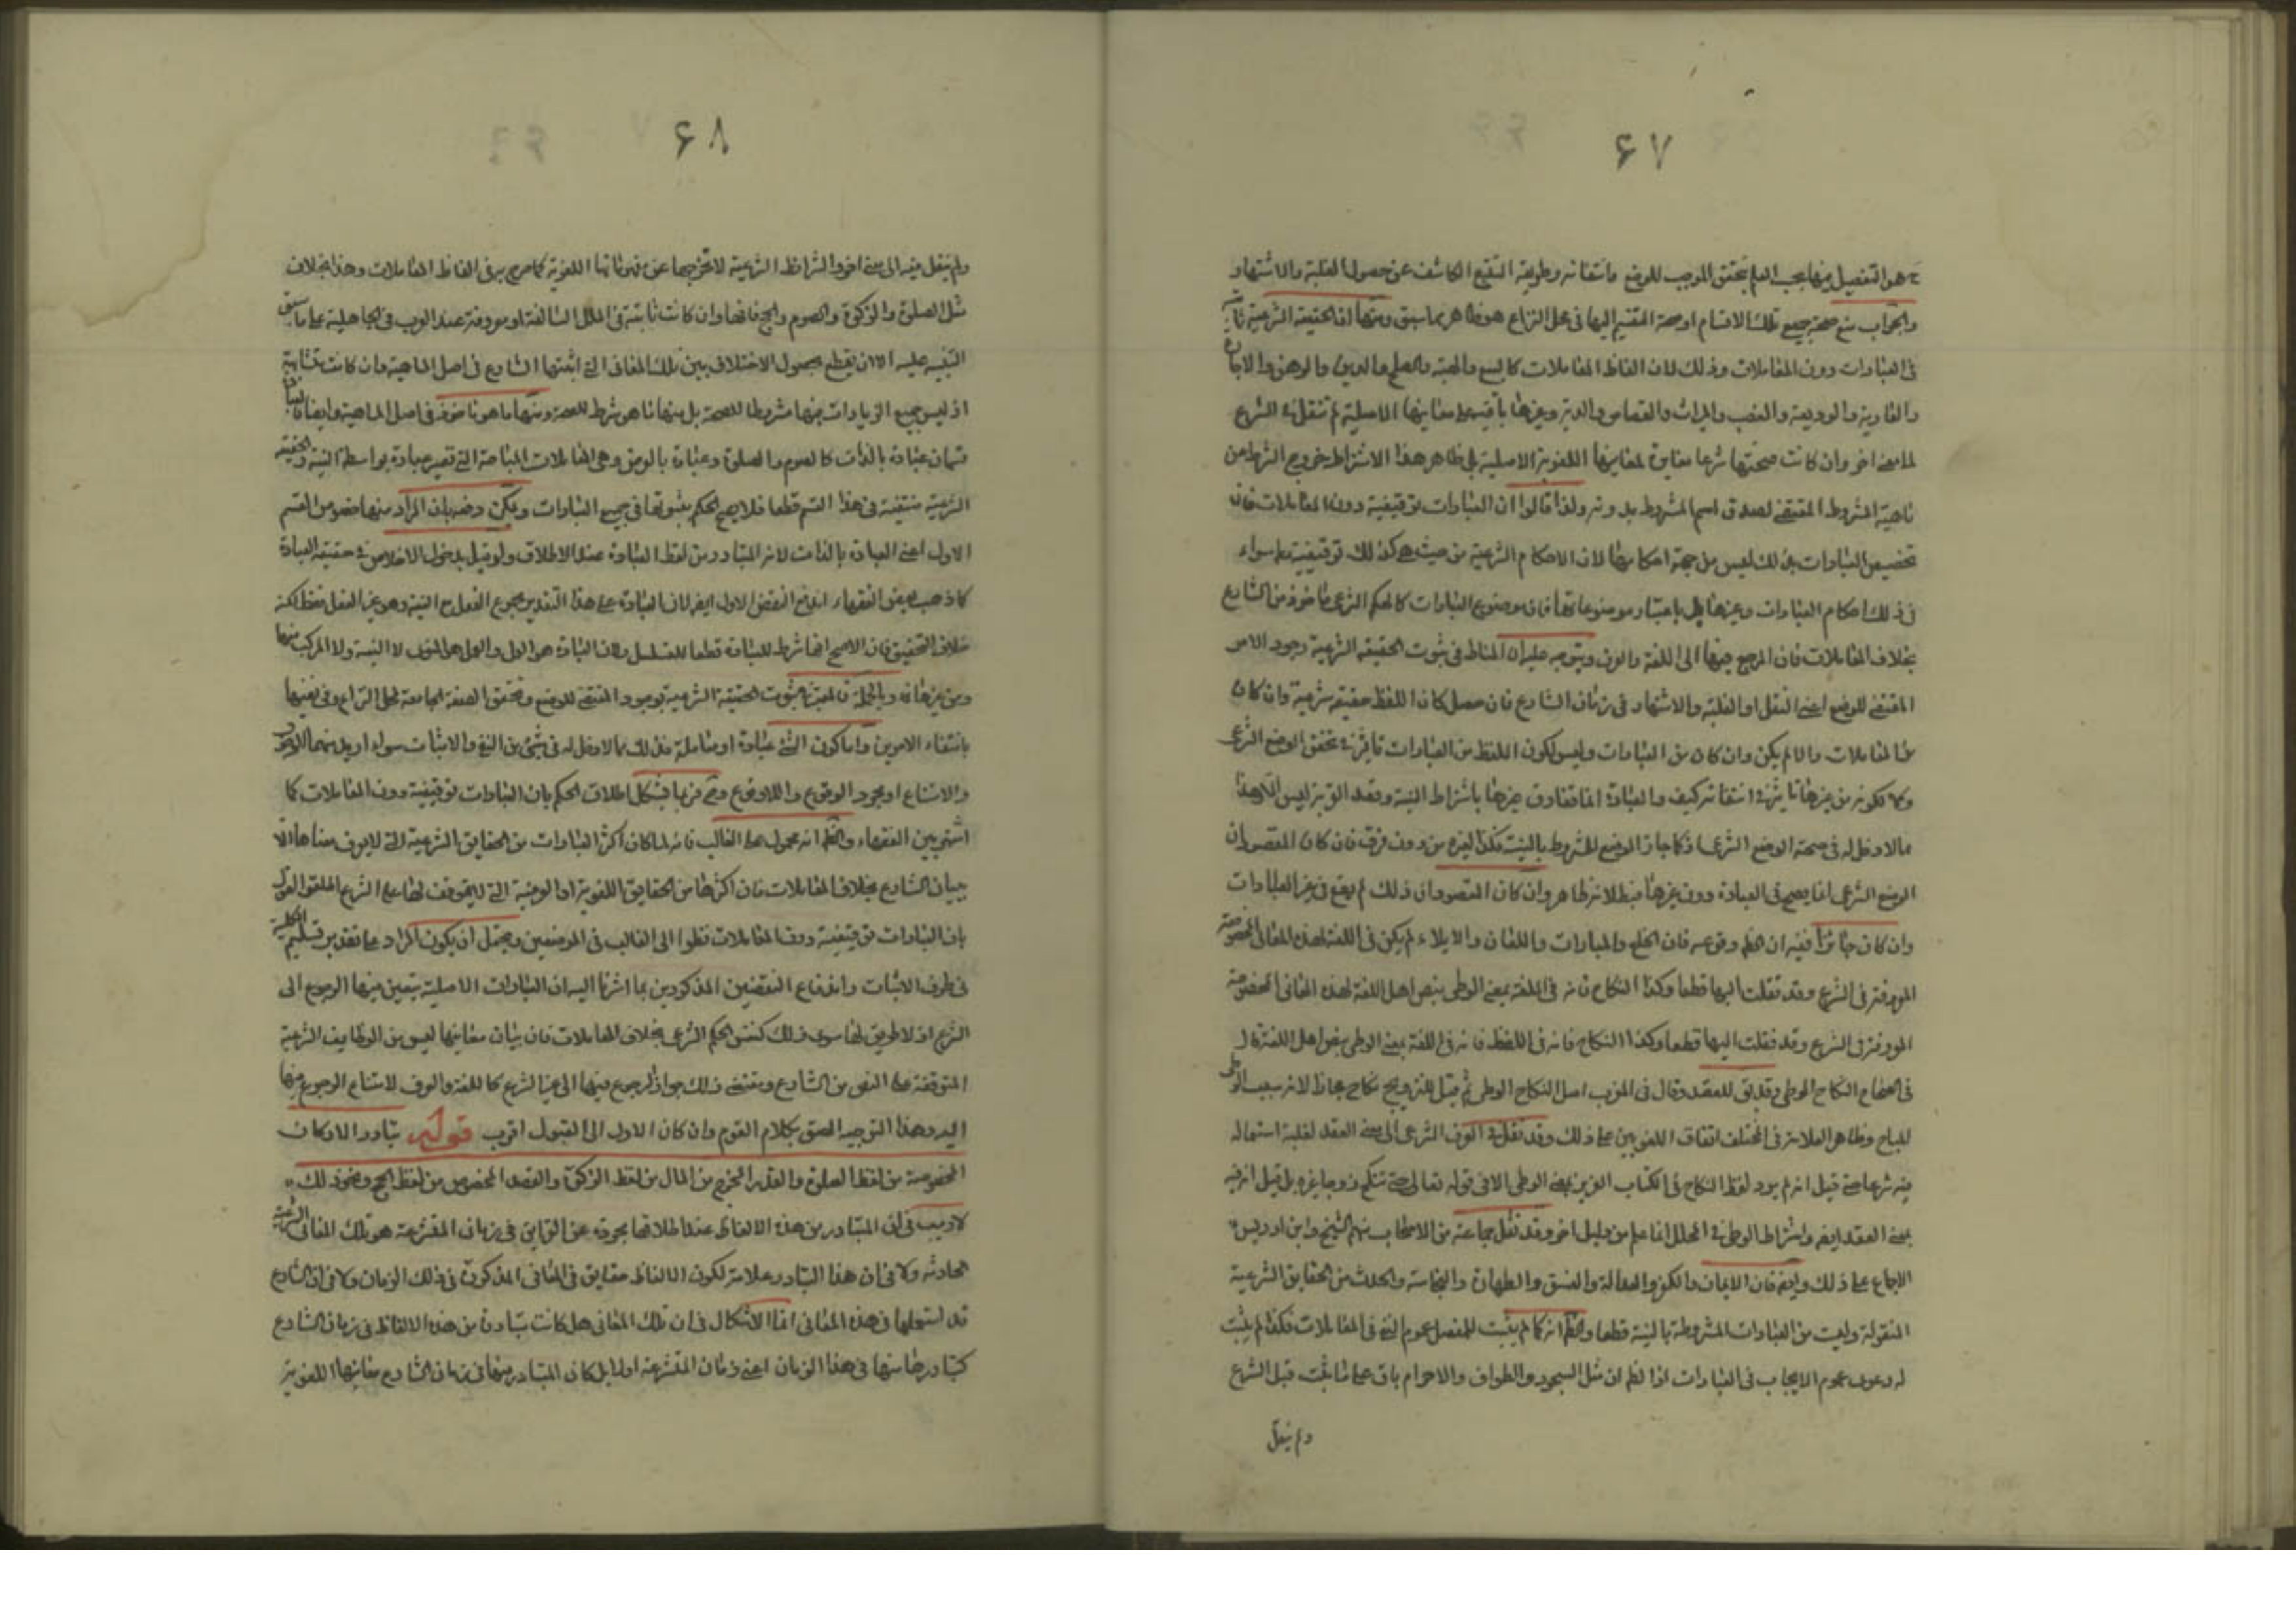 ۶۷
هو التفصيل بينها بحسب العلم بتحقق الموجب للوضع وانتفائه وطريقه التتبع الكاشف عن حصول الغلبة والاشتهار
والجواب منع صحة جميع تلك الاقسام او صحة التقسيم اليها في محل النزاع هو ظاهر مما سبق ومنها ان الحقيقة الشرعية ثابتة
في العبادات دون المعاملات وذلك لان الفاظ المعاملات كالبيع والهبة والصلح والدين والرهن والاجارة
والعارية والوديعة والغصب والميراث والقصاص والدية وغيرها باقية على معانيها الاصلية لم تنقل في الشرع
الى معنى اخر وان كانت صحتها شرعا مغايرة لمعانيها اللغوية الاصلية بل ظاهر هذا الاشتراط خروج الشرط من
ماهية المشروط المقتضى لصدق اسم المشروط بدونه ولذا قالوا ان العبادات توقيفية دون المعاملات فان
تخصيص العبادات بذلك ليس من جهة احكامها لان الاحكام الشرعية من حيث هي كذلك توقيفية سواء
في ذلك احكام العبادات وغيرها بل باعتبار موضوعاتها فان موضوع العبادات كالحكم الشرعي ماخوذ من الشارع
بخلاف المعاملات فان المرجع فيها الى اللغة والعرف ويتوجه عليه ان المناط في ثبوت الحقيقة الشرعية وجود الامر
المقتضى للوضع اعني النقل او الغلبة والاشتهار في زمان الشارع فان حصل كان اللفظ حقيقة شرعية وان كان
من المعاملات والا لم يكن وان كان من العبادات وليس لكون اللفظ من العبادات تاثير في تحقق الوضع الشرعي
ولا لكونه من غيرها تاثير في انتفائه كيف والعبادة انما تفارق غيرها باشتراط النية وقصد القربة ليس الا وهذا
مما لا دخل له في صحة الوضع الشرعي اذ كما جاز الوضع للمشروط بالنية فكذا لغيره من دون فرق فان كان المقصود ان
الوضع الشرعي انما يصح في العبادة دون غيرها فبطلانه ظاهر وان كان المقصود ان ذلك لم يقع في غير العبادات
وان كان جائزا ففيه ان الظ وقوعه فان الخلع والمبارات واللعان والايلاء لم يكن في اللغة لهذه المعاني المخصوصة
المعروفة في الشرع وقد نقلت اليها قطعا وكذا النكاح فانه في اللغة بمعنى الوطى بنص اهل اللغة لهذه المعاني المخصوصة
المعروفة في الشرع وقد نقلت اليها قطعا وكذا النكاح فانه في اللفظ فانه في اللغة بمعنى الوطى بنص اهل اللغة قال
في الصحاح النكاح الوطى وقد يق للعقد وقال في المغرب اصل النكاح الوطى ثم قيل للتزويج نكاح مجازا لانه سبب الوطى
المباح وظاهر العلامة في المختلف اتفاق اللغويين على ذلك وقد نقل في العرف الشرعي الى معنى العقد لغلبة استعماله
فيه شرعا حتى قيل انه لم يرد لفظ النكاح في الكتاب العزيز بمعنى الوطى الا في قوله تعالى حتى تنكح زوجا غيره بل قيل انه فيه
بمعنى العقد ايضا واشتراط الوطى في المحلل انما علم من دليل اخر وقد نقل جماعة من الاصحاب منهم الشيخ وابن ادريس
الاجماع على ذلك وايضا فان الايمان والكفر والعدالة والفسق والطهارة والنجاسة والحدث من الحقايق الشرعية
المنقولة وليست من العبادات المشروطة بالنية قطعا والظ انه كما لم يثبت للمفصل عموم النفي في المعاملات فكذا لم يثبت
له دعوى عموم الايجاب في العبادات اذ الظ ان مثل السجود والطواف والاحرام باق على ما ثبت قبل الشرع
ولم ينقل
۶۸
ولم ينقل فيه الى معنى اخر والشرائط الشرعية لا تخرجها عن مفهوماتها اللغوية كما صرح به في الفاظ المعاملات وهذا بخلاف
مثل الصلوة والزكوة والصوم والحج فانها وان كانت ثابتة في الملل السالفة او معروفة عند العرب في الجاهلية على ما سبق
التنبيه عليه الا ان نقطع بحصول الاختلاف بين تلك المعاني التي اثبتها الشارع في اصل الماهية وان كانت متشابهة
اذ ليس جميع الزيادات منها مشروطا للصحة بل منها ما هو شرط للصحة ومنها ما هو ماخوذ في اصل الماهية وايضا
قسمان عبادة بالذات كالصوم والصلوة وعبادة بالعرض وهي المعاملات المباحة التي تصير عبادة بواسطة النية والحقيقة
الشرعية منتفية في هذا القسم قطعا فلا يصح الحكم بثبوتها في جميع العبادات ويمكن دفعه بان المراد منها خصوص القسم
الاول اعني العبادة بالذات لانه المتبادر من لفظ العبادة عند الاطلاق ولو قيل بدخول الاخلاص في حقيقة العبادة
كما ذهب بعض الفقهاء اندفع النقض الاول ايضا لان العبادة على هذا التقدير مجموع الفعل مع النية وهو غير الفعل فقط لكنه
خلاف التحقيق فان الاصح انها شرط للعبادة قطعا للتسلسل ولان العبادة هو العمل والعمل هو المنوي لا النية ولا المركب منها
ومن غيرها وبالجملة فالمعتبر في ثبوت الحقيقة الشرعية بوجود المقتضى للوضع وتحقق الصفة الجامعة لمحل النزاع وفي نفيها
بانتفاء الامرين واما كون الشئ عبادة او معاملة فذلك مما لا دخل له في شئ من النفي والاثبات سواء اريد منهما الوجوب
والامتناع او مجرد الوقوع واللاوقوع وح فربما يشكل اطلاق الحكم بان العبادات توقيفية دون المعاملات كما
اشتهر بين الفقهاء والظ انه محمول على الغالب فانه لما كان اكثر العبادات من الحقايق الشرعية التي لا يعرف معناها الا
ببيان الشارع بخلاف المعاملات فان اكثرها من الحقايق اللغوية او العرفية التي لا يتوقف لها على الشرع اطلقوا القول
بان العبادات توقيفية دون المعاملات نظرا الى الغالب في الموضعين ويحتمل ان يكون المراد على تقدير تسليم الكلية
في طرف الاثبات واندفاع النقضين المذكورين بما اشرنا اليه ان العبادات الاصلية يتعين فيها الرجوع الى
الشرع اذ لا طريق لها سوى ذلك كنفس الحكم الشرعي بخلاف المعاملات فان بيان معانيها ليس من الوظايف الشرعية
المتوقفة على النص من الشارع ويقتضى ذلك جواز الرجوع فيها الى غير الشرع كاللغة والعرف لامتناع الرجوع فيها
اليه وهذا التوجيه الصق بكلام القوم وان كان الاول الى القبول اقرب قوله تبادر الاركان
المخصوصة من لفظ الصلوة والقدر المخرج من المال من لفظ الزكوة والقصد المخصوص من لفظ الحج ونحو ذلك
لا ريب في ان المتبادر من هذه الالفاظ عند اطلاقها مجردة عن القراين في زمان المتشرعة هو تلك المعاني الشرعية
الحادثة ولا في ان هذا التبادر علامة لكون الالفاظ حقايق في المعاني المذكورة في ذلك الزمان ولا في ان الشارع
قد استعملها في هذه المعاني انما الاشكال في ان تلك المعاني هل كانت متبادرة من هذه الالفاظ في زمان الشارع
كتبادرها منها في هذا الزمان اعني زمان المتشرعة اولا بل كان المتبادر منها في زمان الشارع معانيها اللغوية